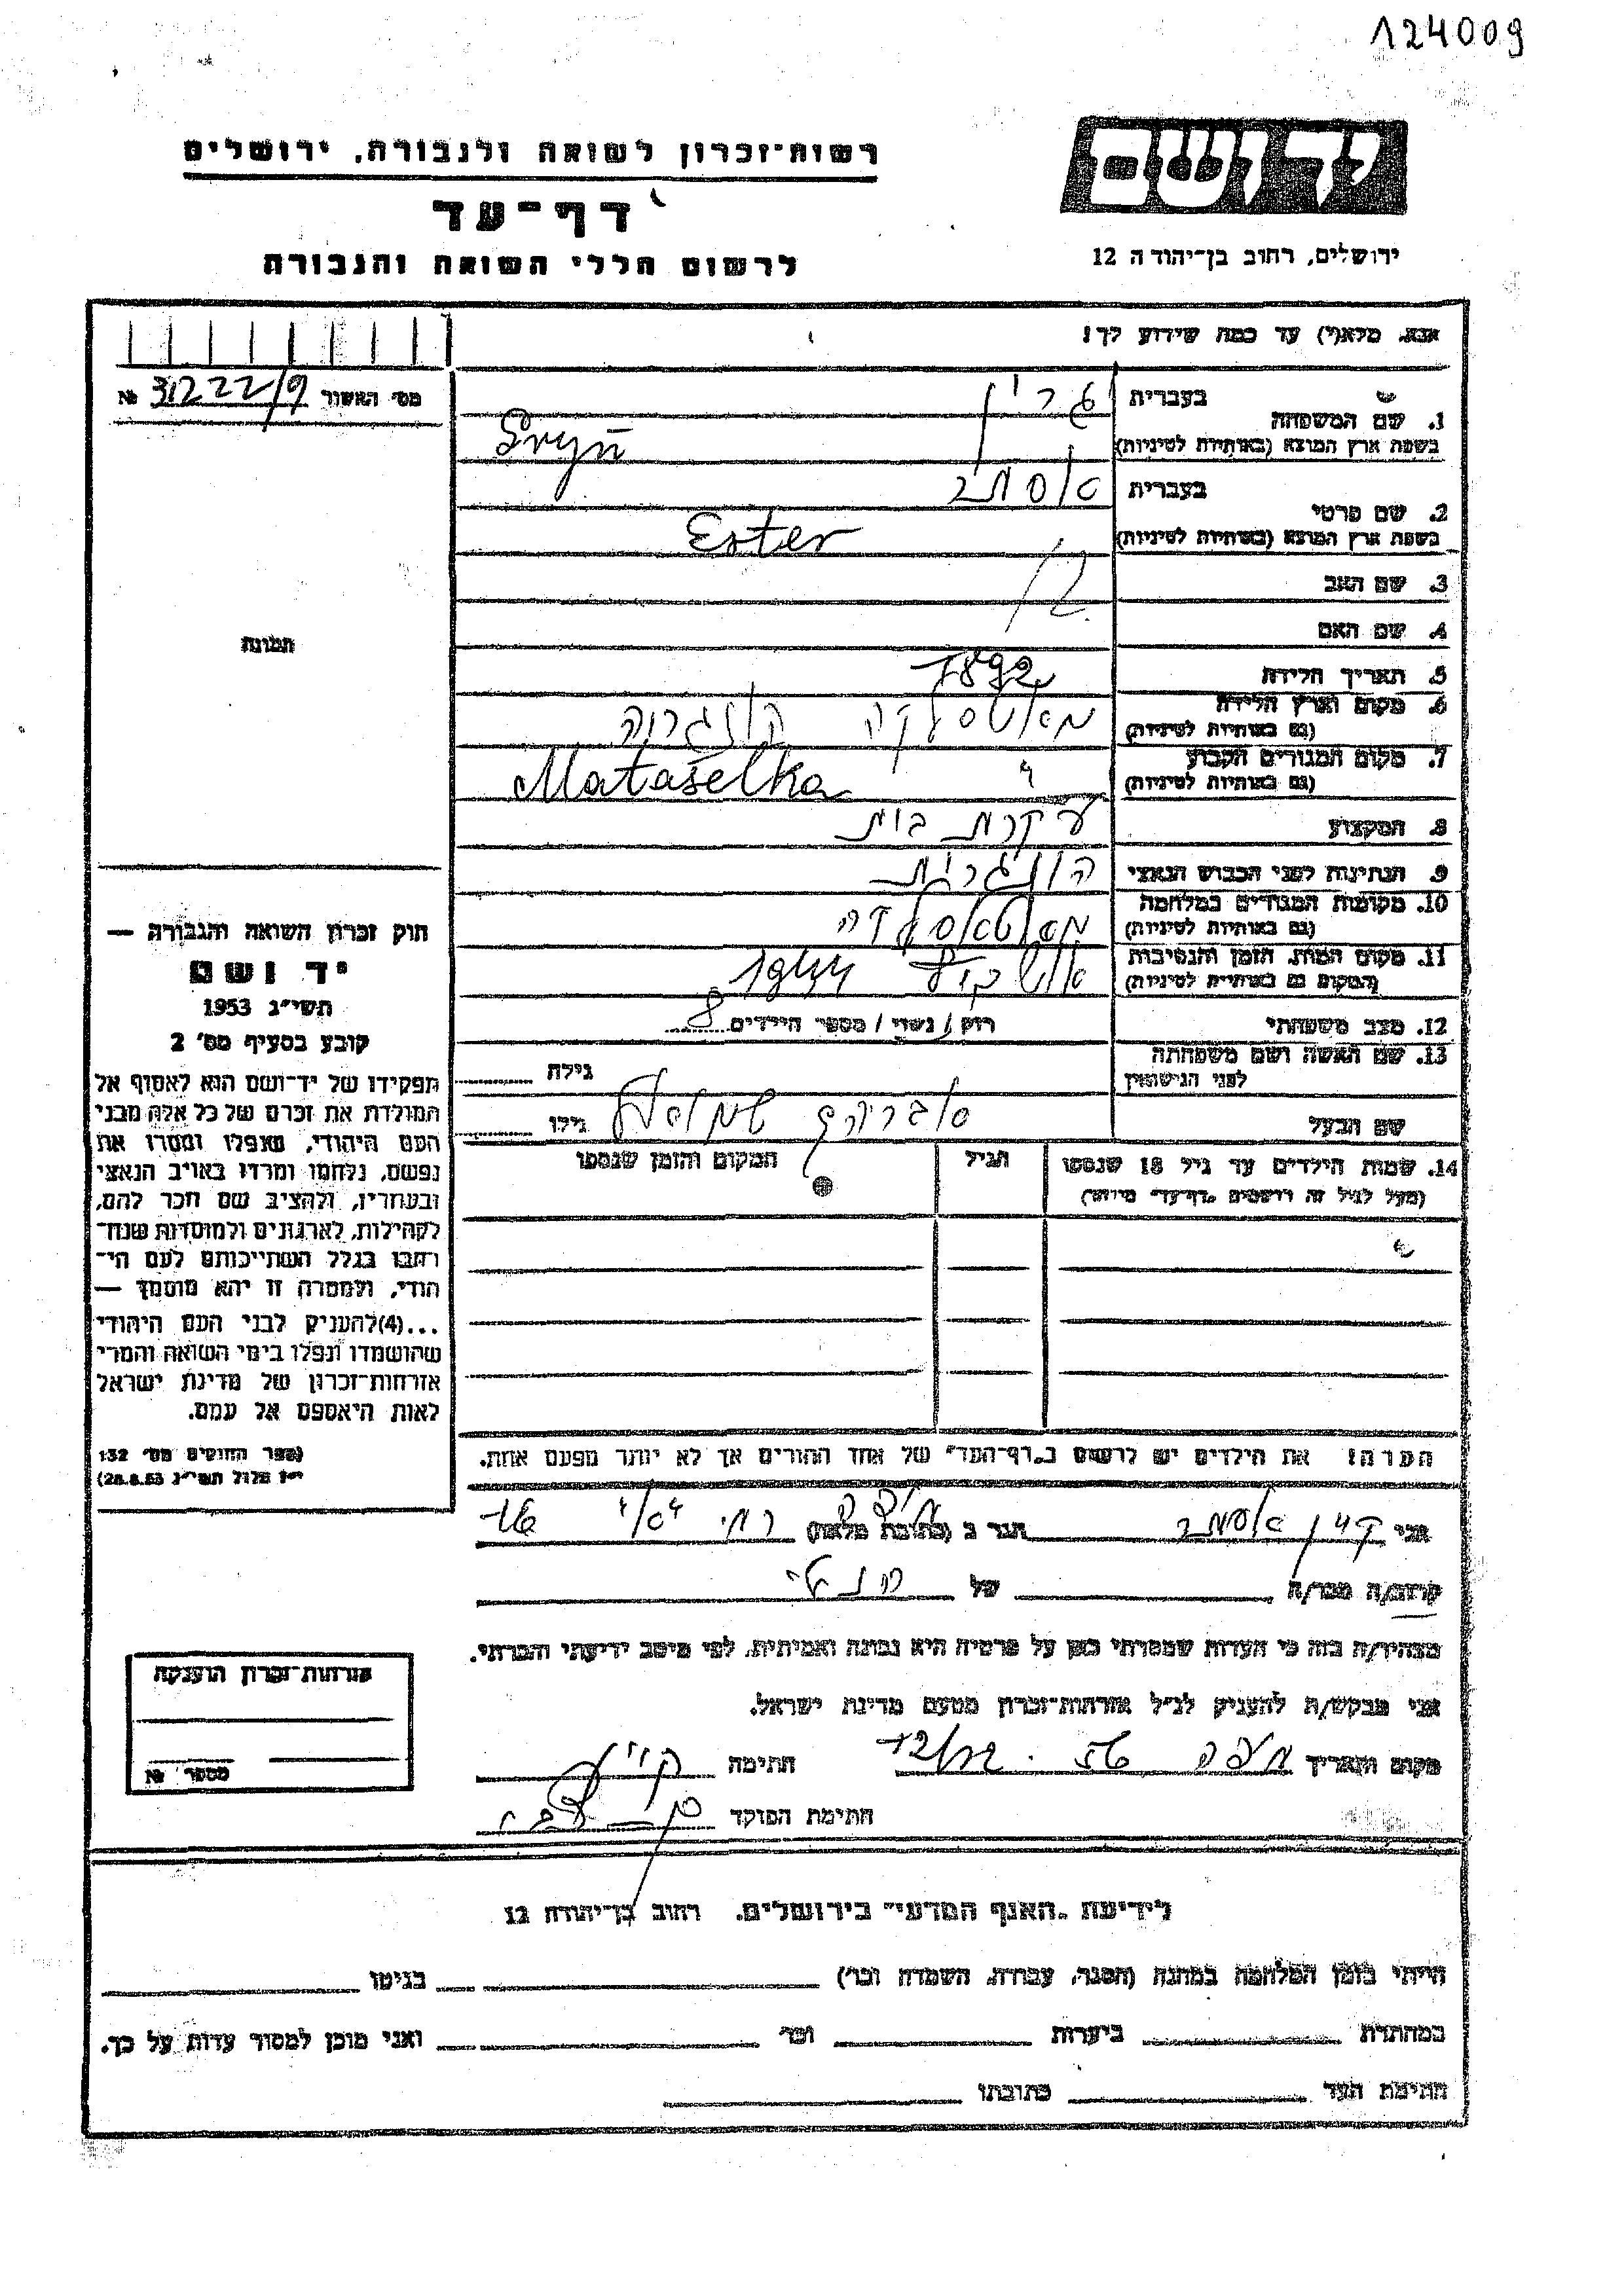 124009
יד ושם
רשות-זכרון לשואה ולגבורה, ירושלים
דף-עד
לרשום חללי השואה והגבורה
ירושלים, רחוב בן-יהודה 12
אנא, מלא(י) עד כמה שידוע לך!
מס' האשור № 31222/9
1. שם המשפחה
בעברית גרין
בשפת ארץ המוצא (באותיות לטיניות)
2. שם פרטי
בעברית אסתר
בשפת ארץ המוצא (באותיות לטיניות) Ester
3. שם האב
4. שם האם
תמונה
5. תאריך הלידה 1892
6. מקום וארץ הלידה
(גם באותיות לטיניות) הונגריה
7. מקום המגורים הקבוע
(גם באותיות לטיניות) " Matašelka
8. המקצוע עקרת בית
9. הנתינות לפני הכבוש הנאצי הונגרית
10. מקומות המגורים במלחמה
(גם באותיות לטיניות)
11. מקום המות, הזמן והנסיבות
(המקום גם באותיות לטיניות) 1944
12. מצב משפחתי רוק / נשוי / מספר הילדים 8
13. שם האשה ושם משפחתה
לפני הנישואין גילה
שם הבעל גילו
14. שמות הילדים עד גיל 18 שנספו הגיל המקום והזמן שנספו
(מעל לגיל זה רושמים "דף-עד" מיוחד)
חוק זכרון השואה והגבורה —
יד ושם
תשי"ג 1953
קובע בסעיף מס' 2
תפקידו של יד-ושם הוא לאסוף אל
המולדת את זכרם של כל אלה מבני
העם היהודי, שנפלו ומסרו את
נפשם, נלחמו ומרדו באויב הנאצי
ובעוזריו, ולהציב שם וזכר להם,
לקהילות, לארגונים ולמוסדות שנח-
רבו בגלל השתייכותם לעם הי-
הודי, ולמטרה זו יהא מוסמך —
...(4)להעניק לבני העם היהודי
שהושמדו ונפלו בימי השואה והמרי
אזרחות-זכרון של מדינת ישראל
לאות היאספם אל עמם.
(ספר החוקים מס' 132
י"ז אלול תשי"ג 28.8.53)
הערה! את הילדים יש לרשום ב"דף-העד" של אחד ההורים אך לא יותר מפעם אחת.
אני אסתר הגר ב (כתובת מלאה) חיפה
קרוב/ה מכר/ה של
מצהיר/ה בזה כי העדות שמסרתי כאן על פרטיה היא נכונה ואמיתית, לפי מיטב ידיעתי והכרתי.
אני מבקש/ת להעניק לנ"ל אזרחות-זכרון מטעם מדינת ישראל.
מקום ותאריך חיפה חתימה
חתימת הפוקד
אזרחות-זכרון הוענקה
מספר №
לידיעת "האגף המדעי" בירושלים, רחוב בן-יהודה 12
הייתי בזמן המלחמה במחנה (הסגר, עבודה, השמדה וכו') בגיטו
במחתרת ביערות וכו' ואני מוכן למסור עדות על כך.
חתימת העד כתובתו